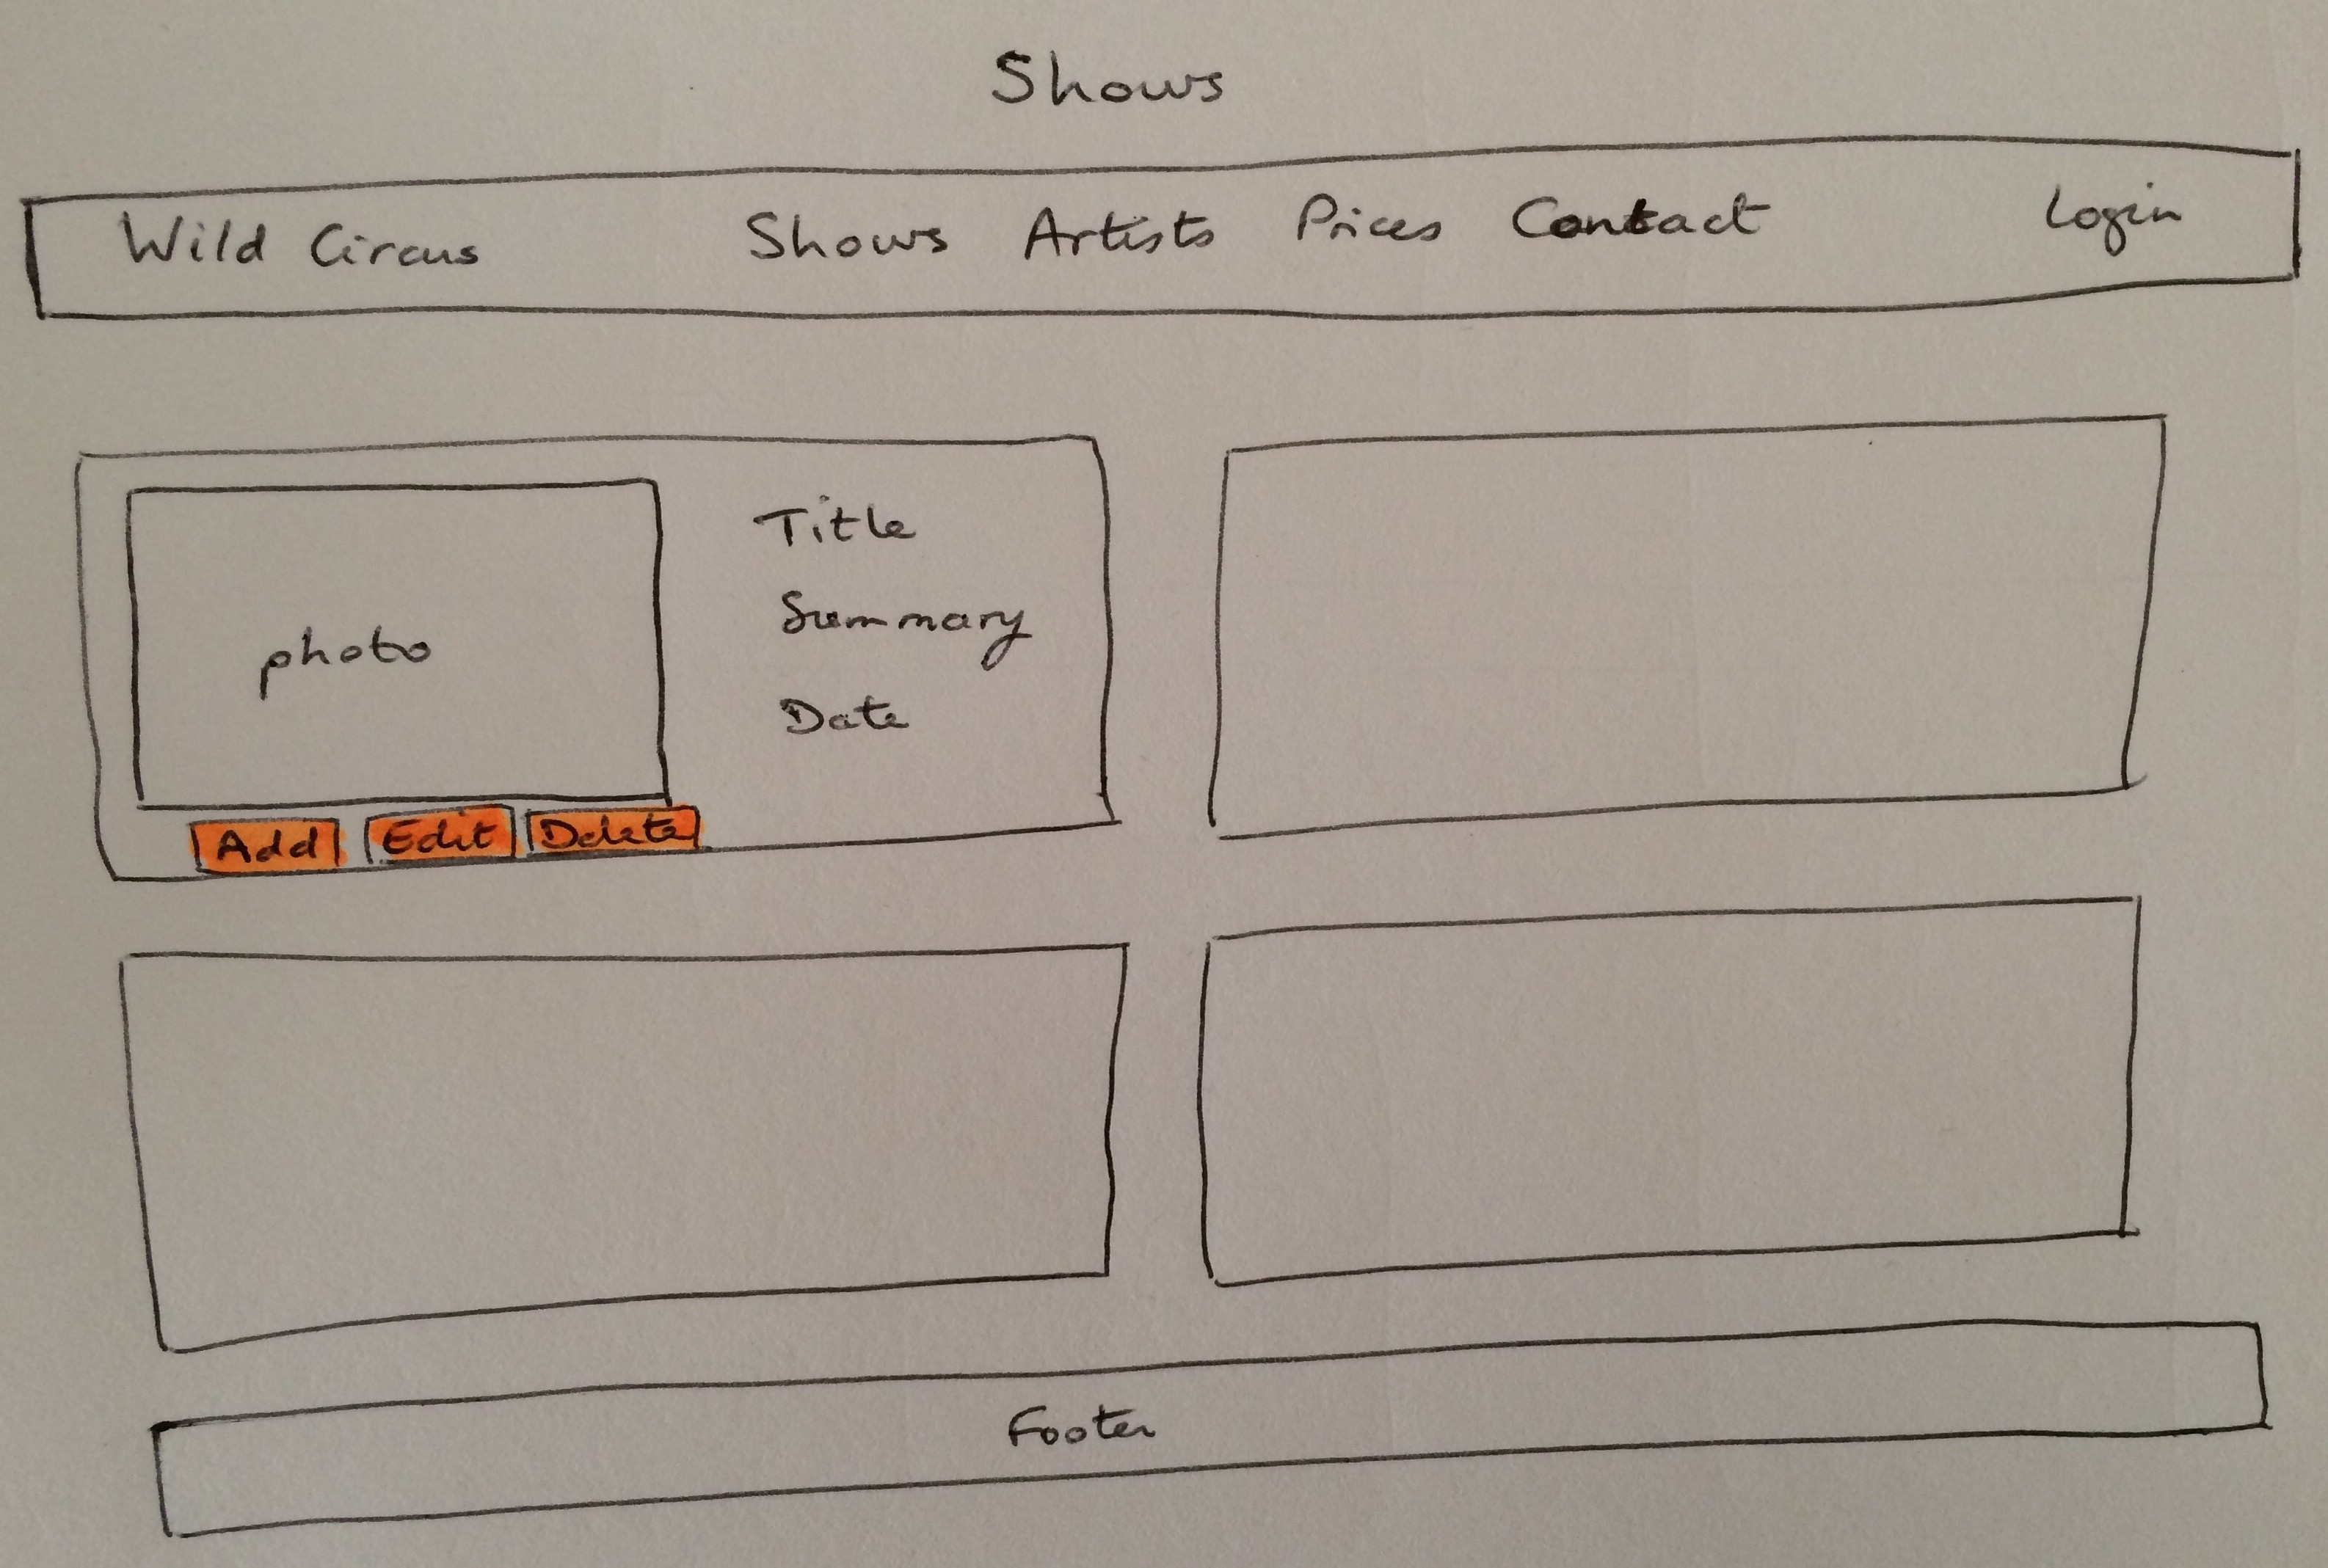 Shows
Wild Circus Shows Artists Prices Contact Login
Title
Summary
photo
Date
Add Edit Delete
Footer